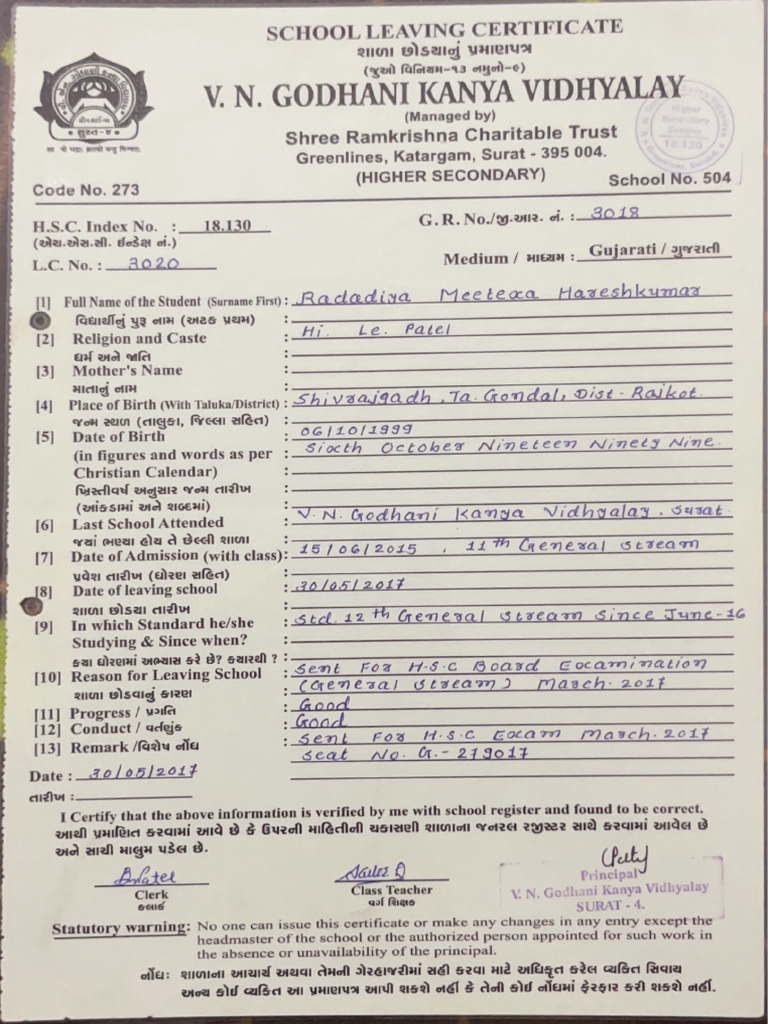 SCHOOL LEAVING CERTIFICATE
શાળા છોડયાનું પ્રમાણપત્ર
(જુઓ વિનિયમ-૧૩ નમુનો-૯)
V. N. GODHANI KANYA VIDHYALAY
(Managed by)
Shree Ramkrishna Charitable Trust
Greenlines, Katargam, Surat - 395 004.
(HIGHER SECONDARY)
સુરત-૪
Higher Secondary
18-130
Code No. 273
School No. 504
H.S.C. Index No. : 18.130
G.R. No./જી.આર. નં. : 3018
(એચ.એસ.સી. ઈન્ડેક્ષ નં.)
L.C. No. : 3020
Medium / માધ્યમ : Gujarati / ગુજરાતી
[1] Full Name of the Student (Surname First) : Radadiya Meetexa Hareshkumar
વિદ્યાર્થીનું પુરૂ નામ (અટક પ્રથમ) :
[2] Religion and Caste : Hi. Le. Patel
ધર્મ અને જાતિ :
[3] Mother's Name :
માતાનું નામ :
[4] Place of Birth (With Taluka/District) : Shivrajgadh, Ta. Gondal, Dist - Rajkot.
જન્મ સ્થળ (તાલુકા, જિલ્લા સહિત) :
[5] Date of Birth : 06/10/1999
(in figures and words as per : Sixth October Nineteen Ninety Nine.
Christian Calendar) :
ખ્રિસ્તીવર્ષ અનુસાર જન્મ તારીખ :
(આંકડામાં અને શબ્દમાં) :
[6] Last School Attended : V. N. Godhani Kanya Vidhyalay. Surat.
જ્યાં ભણ્યા હોય તે છેલ્લી શાળા :
[7] Date of Admission (with class) : 15/06/2015, 11th General Stream
પ્રવેશ તારીખ (ધોરણ સહિત) :
[8] Date of leaving school : 30/05/2017
શાળા છોડયા તારીખ :
[9] In which Standard he/she : Std. 12th General Stream Since June-16
Studying & Since when? :
કયા ધોરણમાં અભ્યાસ કરે છે? કયારથી ? :
[10] Reason for Leaving School : Sent For H.S.C Board Examination
શાળા છોડવાનું કારણ : (General Stream) March. 2017
[11] Progress / પ્રગતિ : Good
[12] Conduct / વર્તણુંક : Good
[13] Remark /વિશેષ નોંધ : Sent For H.S.C Exam March. 2017
Seat No. G. - 279017
Date : 30/05/2017
તારીખ :
I Certify that the above information is verified by me with school register and found to be correct.
આથી પ્રમાણિત કરવામાં આવે છે કે ઉપરની માહિતીની ચકાસણી શાળાના જનરલ રજીસ્ટર સાથે કરવામાં આવેલ છે
અને સાચી માલુમ પડેલ છે.
Clerk
કલાર્ક
Class Teacher
વર્ગ શિક્ષક
Principal
V. N. Godhani Kanya Vidhyalay
SURAT - 4.
Statutory warning: No one can issue this certificate or make any changes in any entry except the
headmaster of the school or the authorized person appointed for such work in
the absence or unavailability of the principal.
નોંધ: શાળાના આચાર્ય અથવા તેમની ગેરહાજરીમાં સહી કરવા માટે અધિકૃત કરેલ વ્યકિત સિવાય
અન્ય કોઈ વ્યકિત આ પ્રમાણપત્ર આપી શકશે નહીં કે તેની કોઈ નોંધમાં ફેરફાર કરી શકશે નહીં.